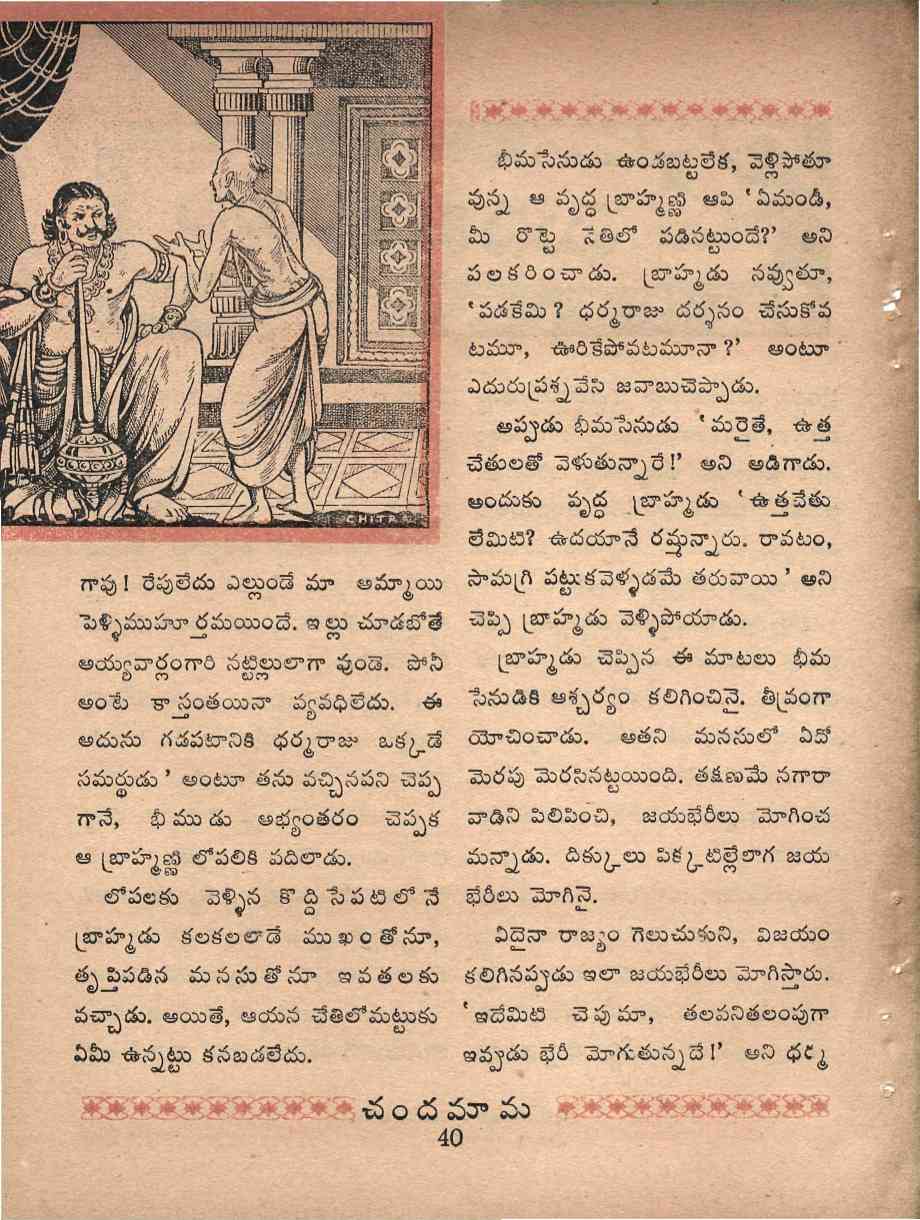 CHITRA
గావు! రేపులేదు ఎల్లుండే మా అమ్మాయి
పెళ్ళిముహూర్తమయిందే. ఇల్లు చూడబోతే
అయ్యవార్లంగారి నట్టిల్లులాగా వుండె. పోనీ
అంటే కాస్తంతయినా వ్యవధిలేదు. ఈ
అదును గడపటానికి ధర్మరాజు ఒక్కడే
సమర్థుడు' అంటూ తను వచ్చినపని చెప్ప
గానే, భీముడు అభ్యంతరం చెప్పక
ఆ బ్రాహ్మణ్ణి లోపలికి పదిలాడు.
లోపలకు వెళ్ళిన కొద్ది సేపటిలోనే
బ్రాహ్మడు కలకలలాడే ముఖంతోనూ,
తృప్తిపడిన మనసుతోనూ ఇవతలకు
వచ్చాడు. అయితే, ఆయన చేతిలోమట్టుకు
ఏమీ ఉన్నట్టు కనబడలేదు.
భీమసేనుడు ఉండబట్టలేక, వెళ్లిపోతూ
వున్న ఆ వృద్ధ బ్రాహ్మణ్ణి ఆపి 'ఏమండీ,
మీ రొట్టె నేతిలో పడినట్టుందే?' అని
పలకరించాడు. బ్రాహ్మడు నవ్వుతూ,
'పడకేమి? ధర్మరాజు దర్శనం చేసుకోవ
టమూ, ఊరికేపోవటమూనా?' అంటూ
ఎదురుప్రశ్నవేసి జవాబుచెప్పాడు.
అప్పుడు భీమసేనుడు 'మరైతే, ఉత్త
చేతులతో వెళుతున్నారే!' అని అడిగాడు.
అందుకు వృద్ధ బ్రాహ్మడు 'ఉత్తచేతు
లేమిటి? ఉదయానే రమ్మన్నారు. రావటం,
సామగ్రి పట్టుకవెళ్ళడమే తరువాయి' అని
చెప్పి బ్రాహ్మడు వెళ్ళిపోయాడు.
బ్రాహ్మడు చెప్పిన ఈ మాటలు భీమ
సేనుడికి ఆశ్చర్యం కలిగించినై. తీవ్రంగా
యోచించాడు. అతని మనసులో ఏదో
మెరపు మెరసినట్టయింది. తక్షణమే నగారా
వాడిని పిలిపించి, జయభేరీలు మోగించ
మన్నాడు. దిక్కులు పిక్కటిల్లేలాగ జయ
భేరీలు మోగినై.
ఏదైనా రాజ్యం గెలుచుకుని, విజయం
కలిగినప్పుడు ఇలా జయభేరీలు మోగిస్తారు.
'ఇదేమిటి చెపుమా, తలవనితలంపుగా
ఇవ్వడు భేరీ మోగుతున్నదే!' అని ధర్మ
చందమామ
40